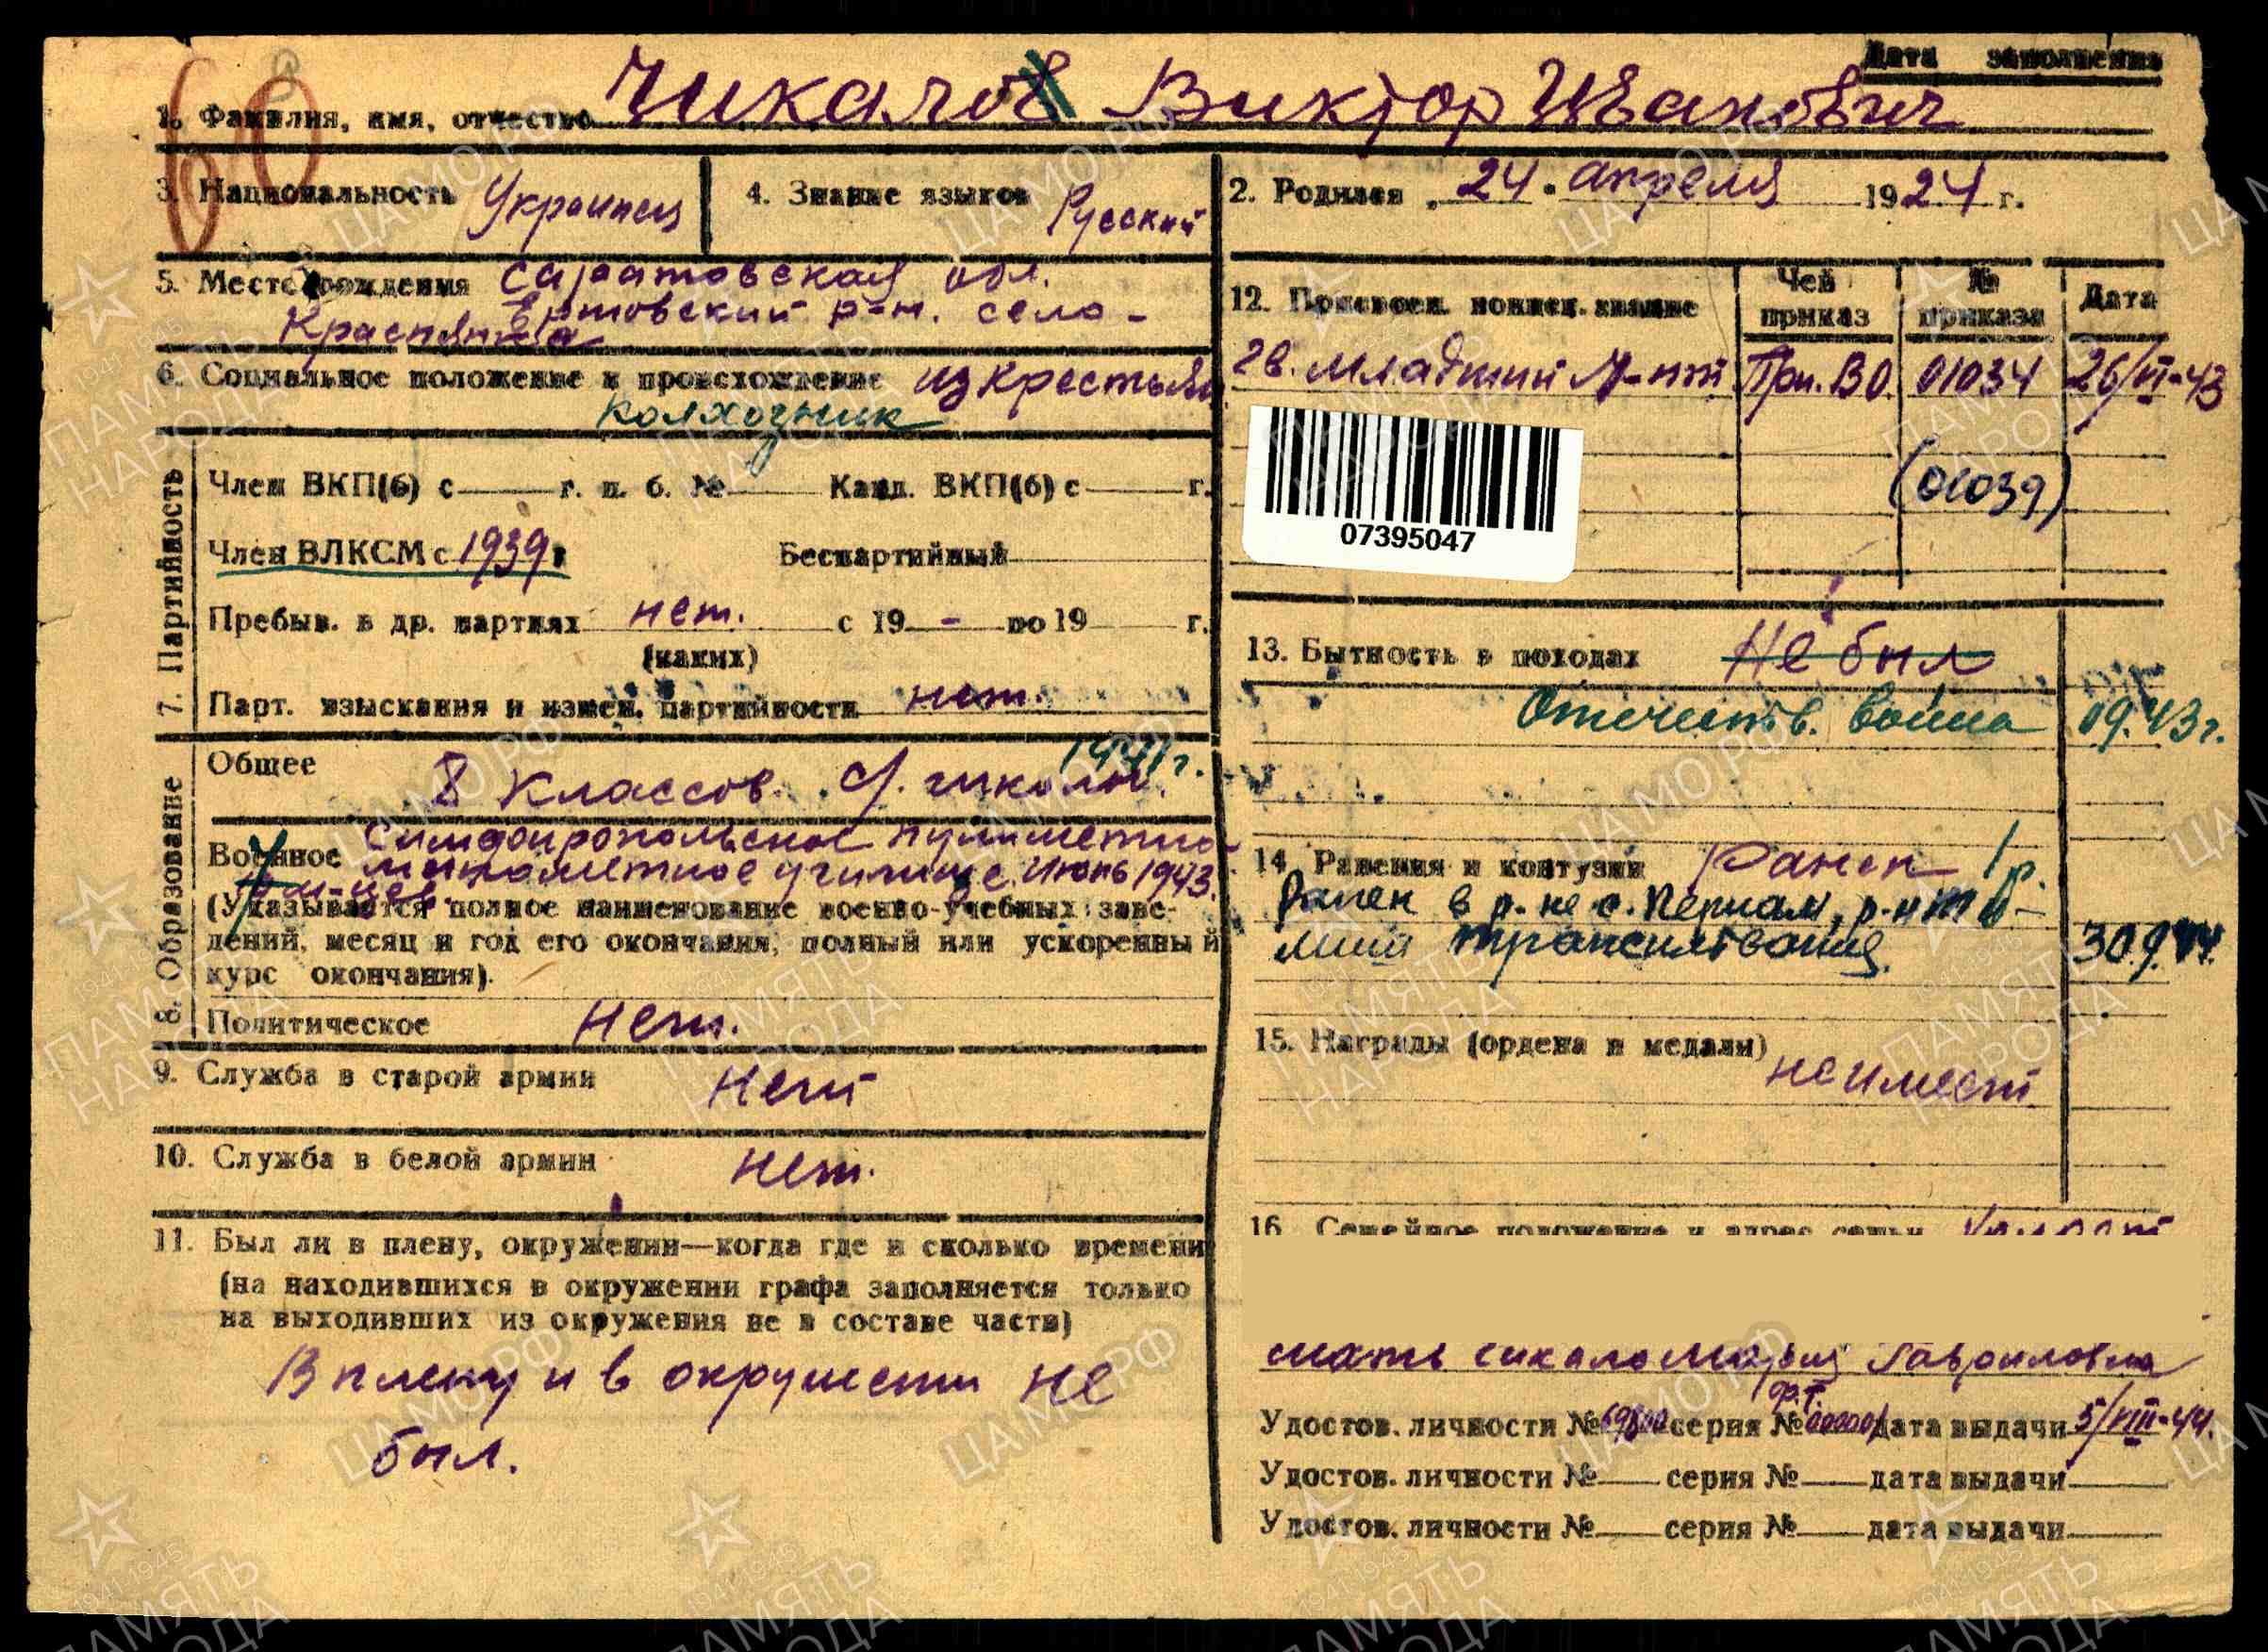 Дата заполнения
60
1. Фамилия, имя, отчество Чикалов Виктор Иванович
3. Национальность Украинец
4. Знание языков Русский
2. Родился „ 24 " апреля 1924 г.
5. Место рождения Саратовская обл.
Ертовский р-н. село -
6. Социальное положение и происхождение из крестьян
колхозник
12. Присвоен. воинск. звание
Чей приказ
№ приказа
Дата
гв. младший л-нт При.ВО. 01034 26/VI-43
(01039)
07395047
7. Партийность
Член ВКП(б) с г. п. б. № Канд. ВКП(б) с г.
Член ВЛКСМ с 1939 г
Беспартийный
Пребыв. в др. партиях нет. с 19 - по 19 г.
(каких)
Парт. взыскания и измен. партийности нет.
13. Бытность в походах Не был
Отечеств. война 09.43г.
8. Образование
Общее 8 классов с/. школы. 1941г.
Военное Симферопольское пулеметно-
минометное училище. Июнь 1943.
(Указывается полное наименование военно-учебных заве-
дений, месяц и год его окончания, полный или ускоренный
курс окончания).
Политическое Нет.
14. Ранения и контузии Ранен 1р.
Ранен в р-не с. Периам, р-н
Трансильвания. 30.9.44.
9. Служба в старой армии Нет
15. Награды (ордена и медали)
не имеет.
10. Служба в белой армии нет.
11. Был ли в плену, окружении—когда где и сколько времени
(на находившихся в окружении графа заполняется только
на выходивших из окружения не в составе части)
В плену и в окружении не
был.
16. Семейное положение и адрес семьи
мать Чикало Мария Гавриловна
Удостов. личности № серия № дата выдачи 5/VIII-44.
Удостов. личности № серия № дата выдачи
Удостов. личности № серия № дата выдачи
ЦАМО.РФ
ПАМЯТЬ НАРОДА
1941-1945